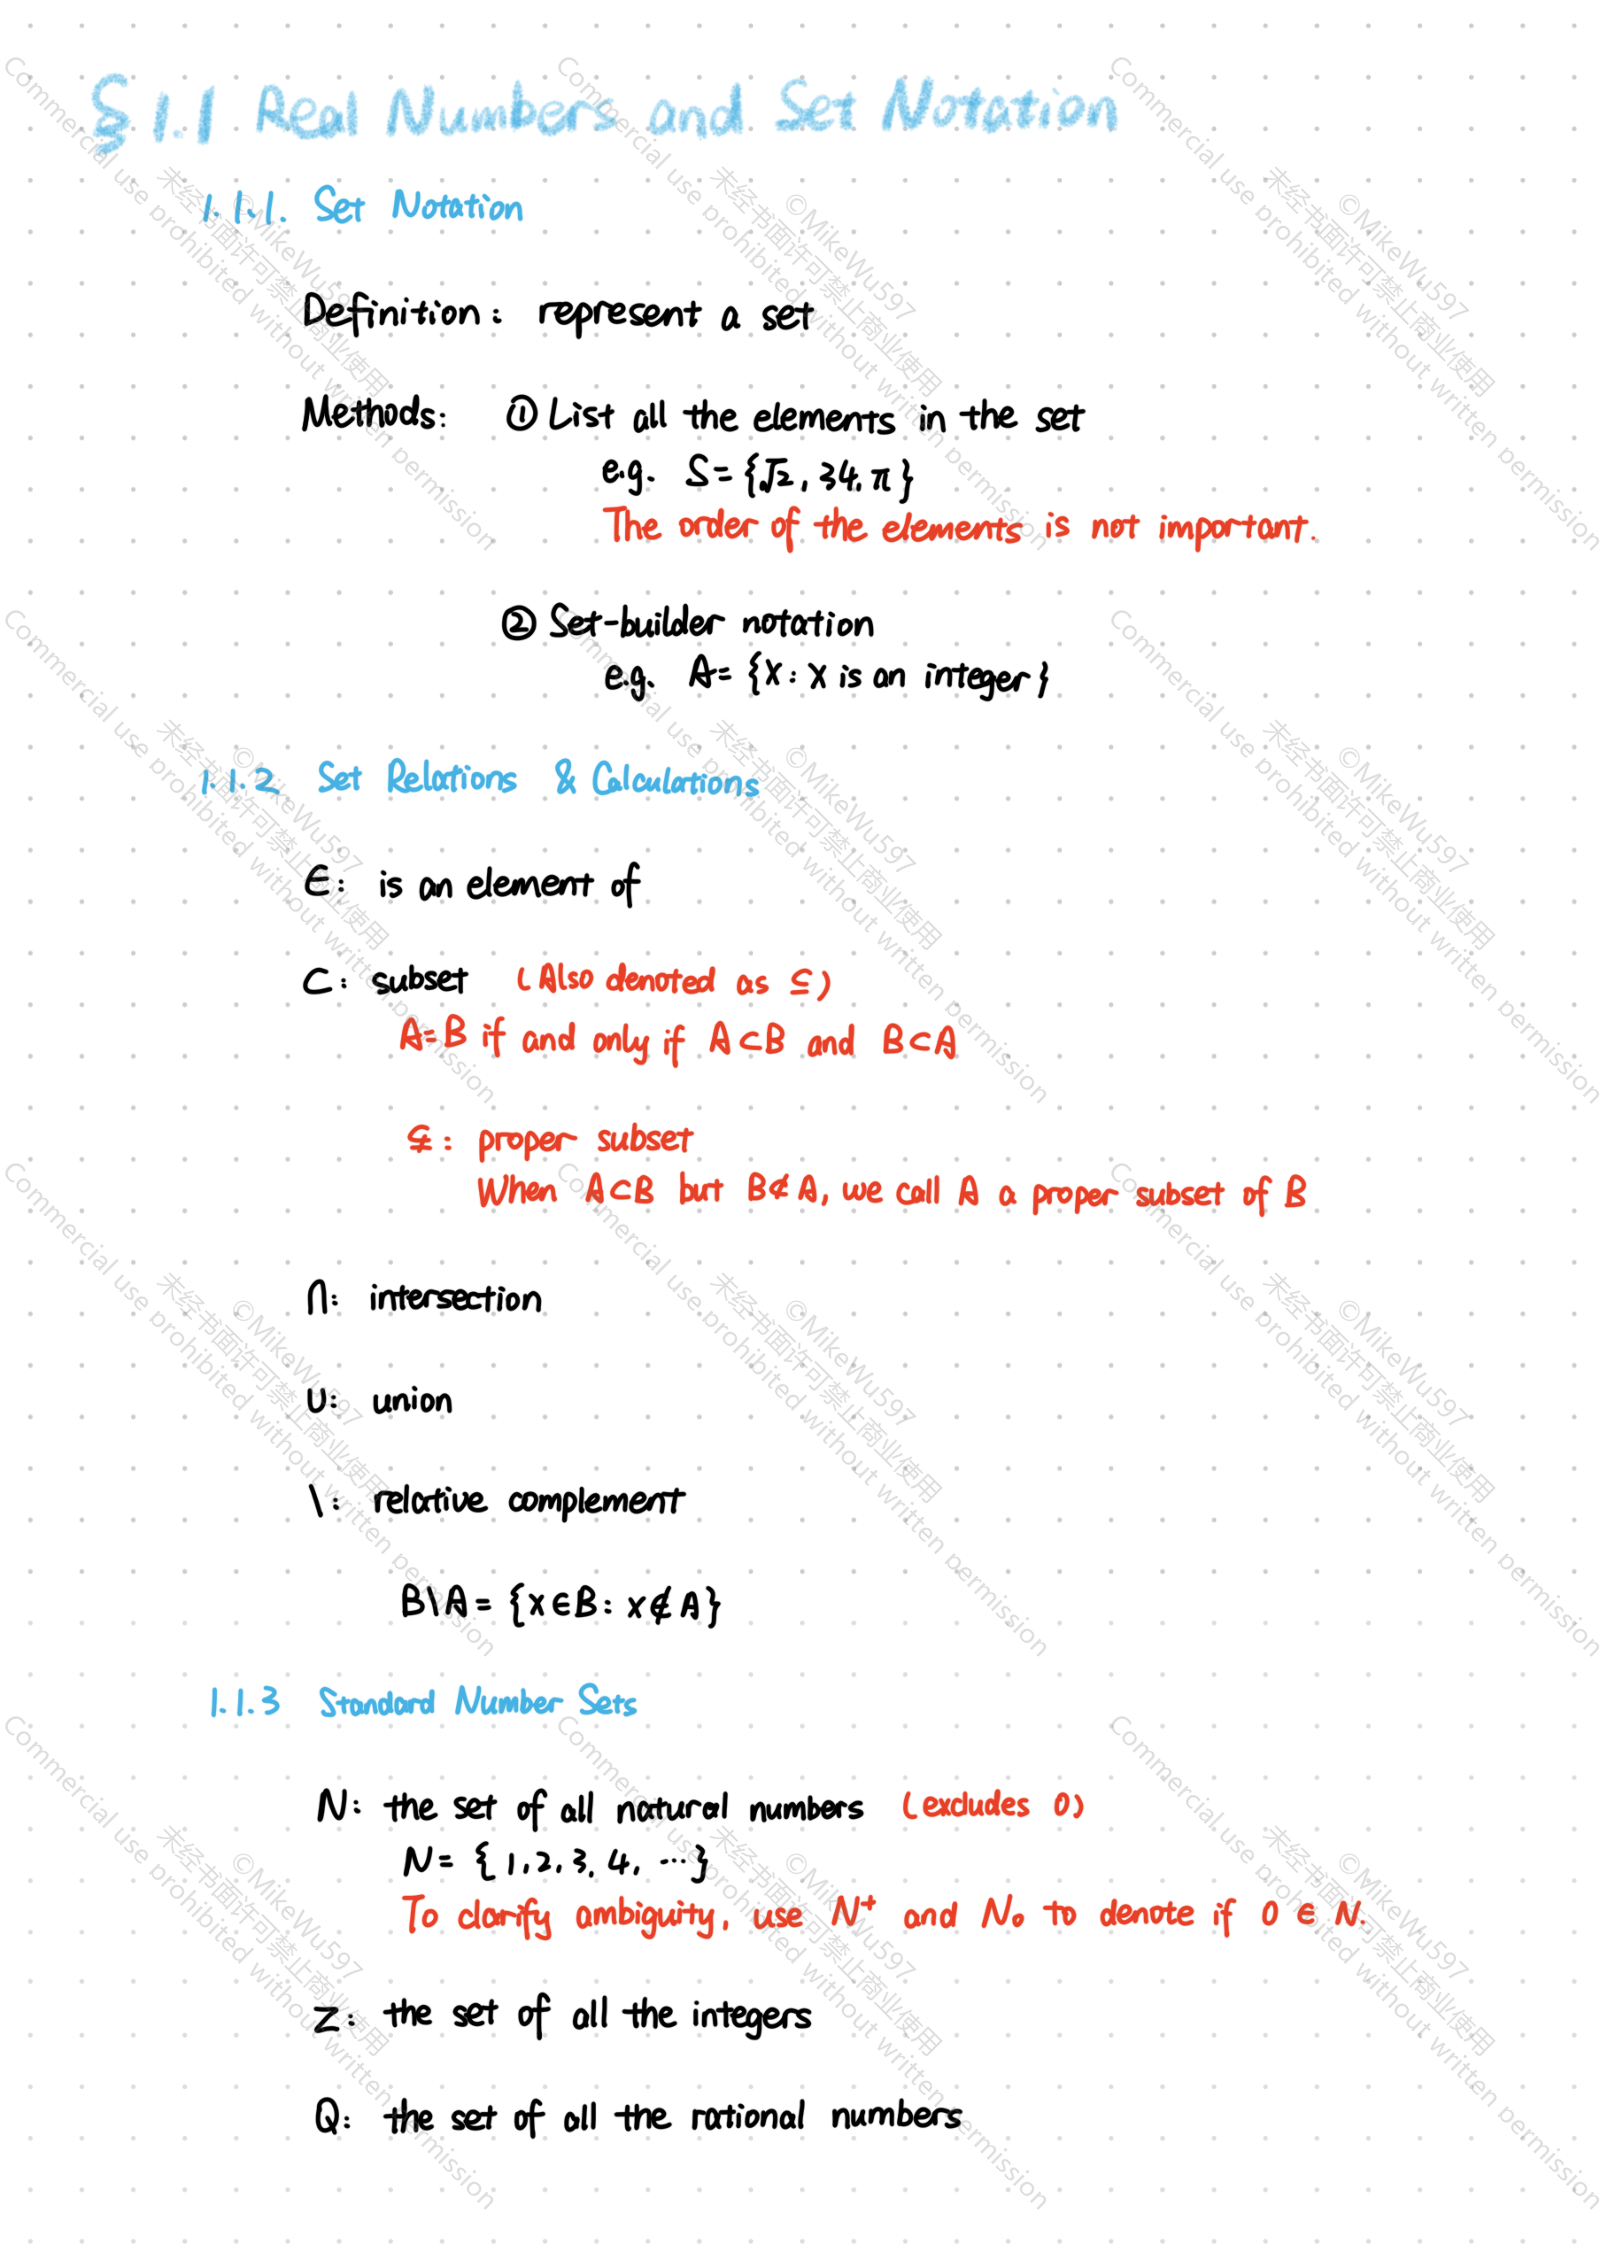 § 1.1 Real Numbers and Set Notation
1.1.1. Set Notation
Definition: represent a set
Methods: ① List all the elements in the set
e.g. S = {√2, 34, π}
The order of the elements is not important.
② Set-builder notation
e.g. A = {x : x is an integer}
1.1.2 Set Relations & Calculations
∈: is an element of
⊂: subset (Also denoted as ⊆)
A=B if and only if A⊂B and B⊂A
⊊: proper subset
When A⊂B but B⊄A, we call A a proper subset of B
∩: intersection
∪: union
\: relative complement
B\A = {x∈B : x∉A}
1.1.3 Standard Number Sets
N: the set of all natural numbers (excludes 0)
N = {1, 2, 3, 4, ⋯}
To clarify ambiguity, use N⁺ and N₀ to denote if 0 ∈ N.
Z: the set of all the integers
Q: the set of all the rational numbers
©MikeWu597
未经书面许可禁止商业使用
Commercial use prohibited without written permission